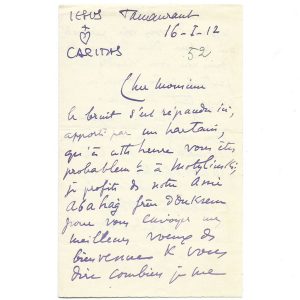 IESUS
CARITAS
Tamanrasset
16-I-12
52
Cher Monsieur
le bruit s'est répandu ici,
apporté par un hartani,
qu'à cette heure vous êtes
probablement à Motylinski;
je profite de notre ami
Abahag frère d'Ouksem
pour vous envoyer mes
meilleurs vœux de
bienvenue & vous
dire combien je me